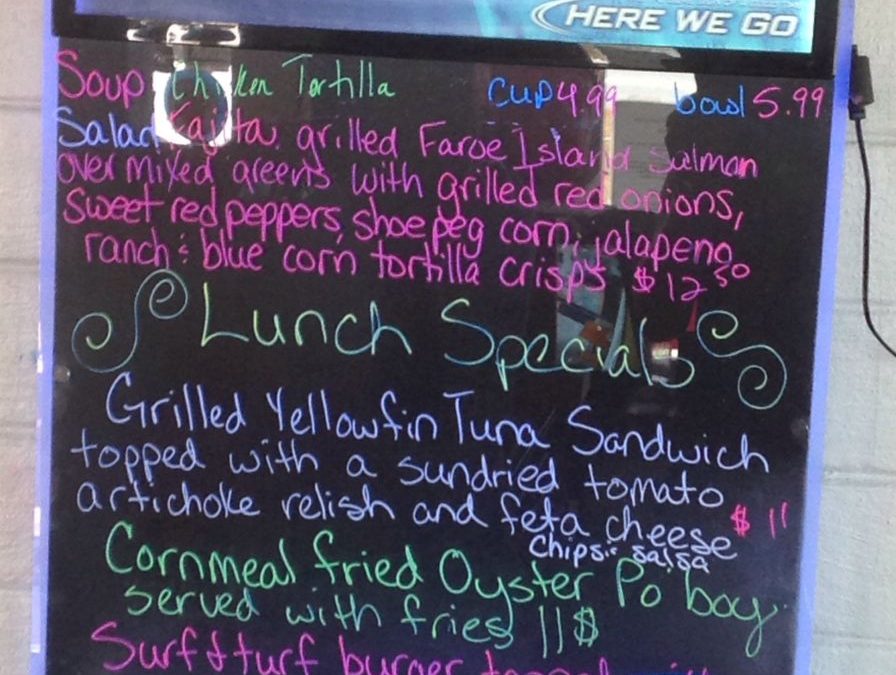 HERE WE GO
Soup Chicken Tortilla cup 4.99 bowl 5.99
Salad Fajita grilled Faroe Island Salmon
over mixed greens with grilled red onions,
sweet red peppers, shoepeg corn, jalapeno
ranch & blue corn tortilla crisps $12 50
Lunch Specials
Grilled Yellowfin Tuna Sandwich
topped with a sundried tomato
artichoke relish and feta cheese $ 11
Chips & salsa
Cornmeal fried Oyster Po boy
served with fries 11$
Surf & turf burger topped